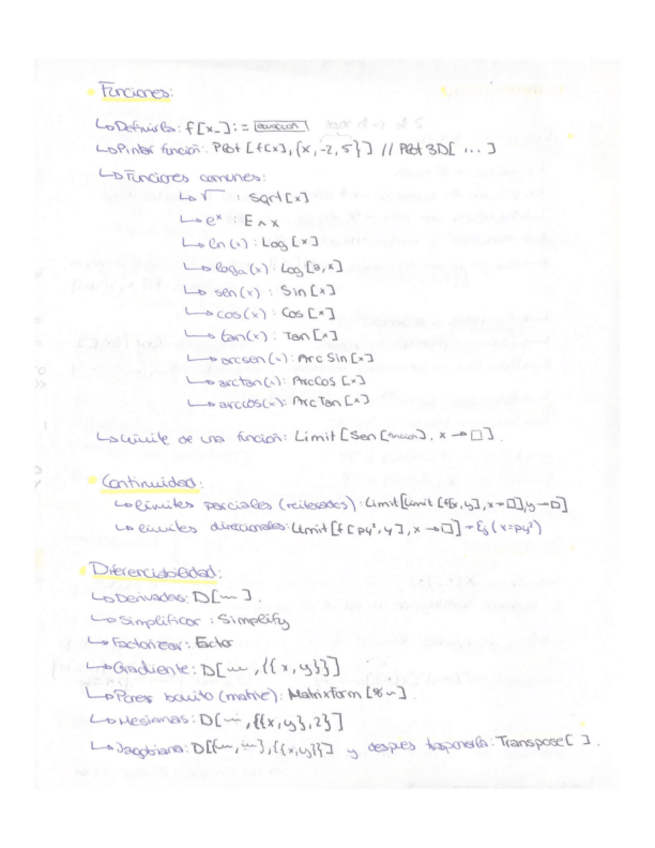 Funciones:
↳ Definirlas: f[x_]:= ecuación
↳ Pintar función: Plot[f[x],{x,-2,5}] // Plot3D[ ... ]
↳ Funciones comunes:
↳ √ : Sqrt[x]
↳ eˣ : E ^ x
↳ ln(x) : Log[x]
↳ logₐ(x) : Log[a,x]
↳ sen(x) : Sin[x]
↳ cos(x) : Cos[x]
↳ tan(x) : Tan[x]
↳ arcsen(x) : ArcSin[x]
↳ arctan(x) : ArcCos[x]
↳ arccos(x) : ArcTan[x]
↳ Límite de una función: Limit[Sen[función], x→□].
Continuidad:
↳ límites parciales (reiterados): Limit[Limit[f[x,y],x→□],y→□]
↳ límites direccionales: Limit[f[py²,y],x→□] → Ej (x=py²)
Diferenciabilidad:
↳ Derivadas: D[~].
↳ Simplificar: Simplify
↳ Factorizar: Factor
↳ Gradiente: D[~,{{x,y}}]
↳ Poner bonito (matriz): MatrixForm[%~].
↳ Hesianas: D[~,{{x,y},2}]
↳ Jacobiana: D[{~,~},{{x,y}}] y después trasponerla: Transpose[ ].